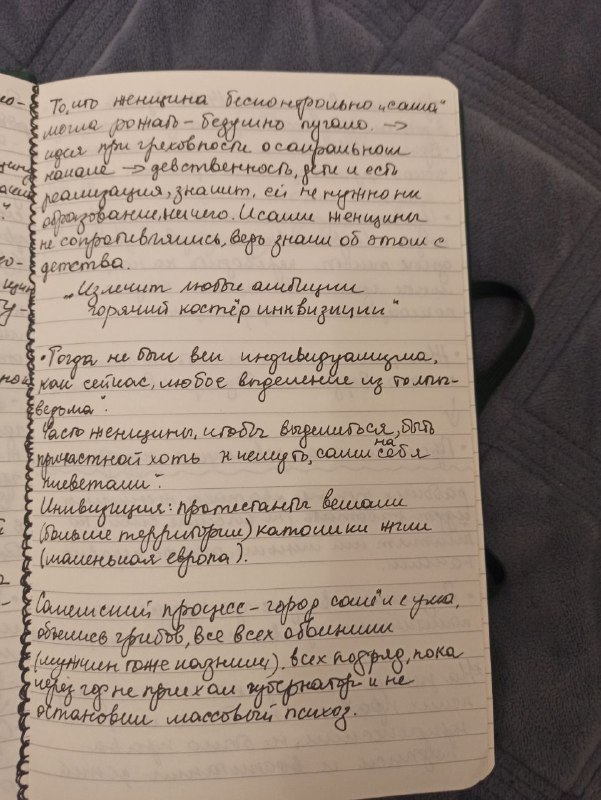 То, что женщина бесконтрольно "сама"
могла рожать – бездушно пугало. →
идея при греховности о сакральном
начале → девственность, дети и есть
реализация, значит, ей не нужно ни
образование, ничего. И сами женщины
не сопротивлялись, ведь знали об этом с
детства.
"Излечит любые амбиции
горячий костёр инквизиции"
• Тогда не был век индивидуализма,
как сейчас, любое выделение из толпы-
ведьма".
Часто женщины, чтобы выделиться, быть
причастной хоть к чему-то, сами на себя
клеветали".
Инквизиция: протестанты вешали
(больше территории) католики жгли
(маленькая европа).
Салемский процесс – город сошёл с ума,
объелись грибов, все всех обвинили
(мужчин тоже казнили). всех подряд, пока
через год не приехал губернатор и не
остановил массовый психоз.